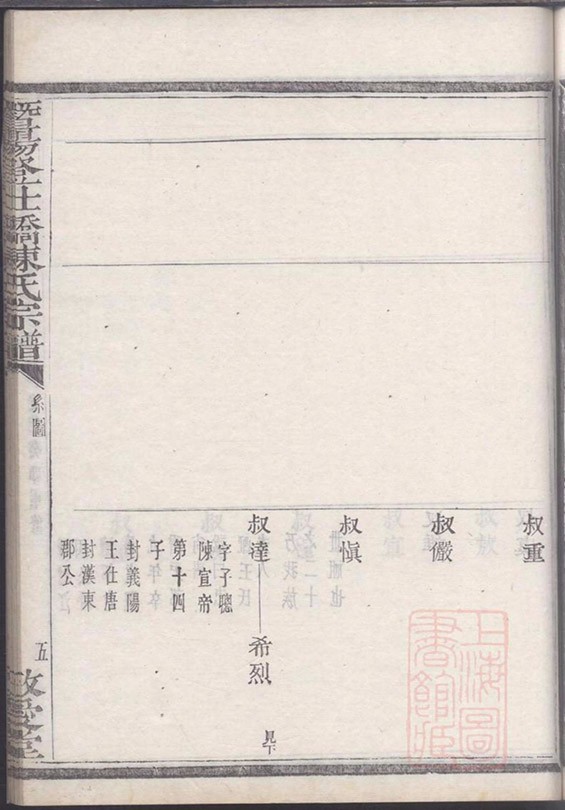 叔重
叔儼
叔慎
叔達
字子聰
陳宣帝
第十四
子
封義陽
王仕唐
封漢東
郡公
希烈
見下
暨陽登仕橋陳氏宗譜
系圖
五
敬愛堂
上海圖
書館藏